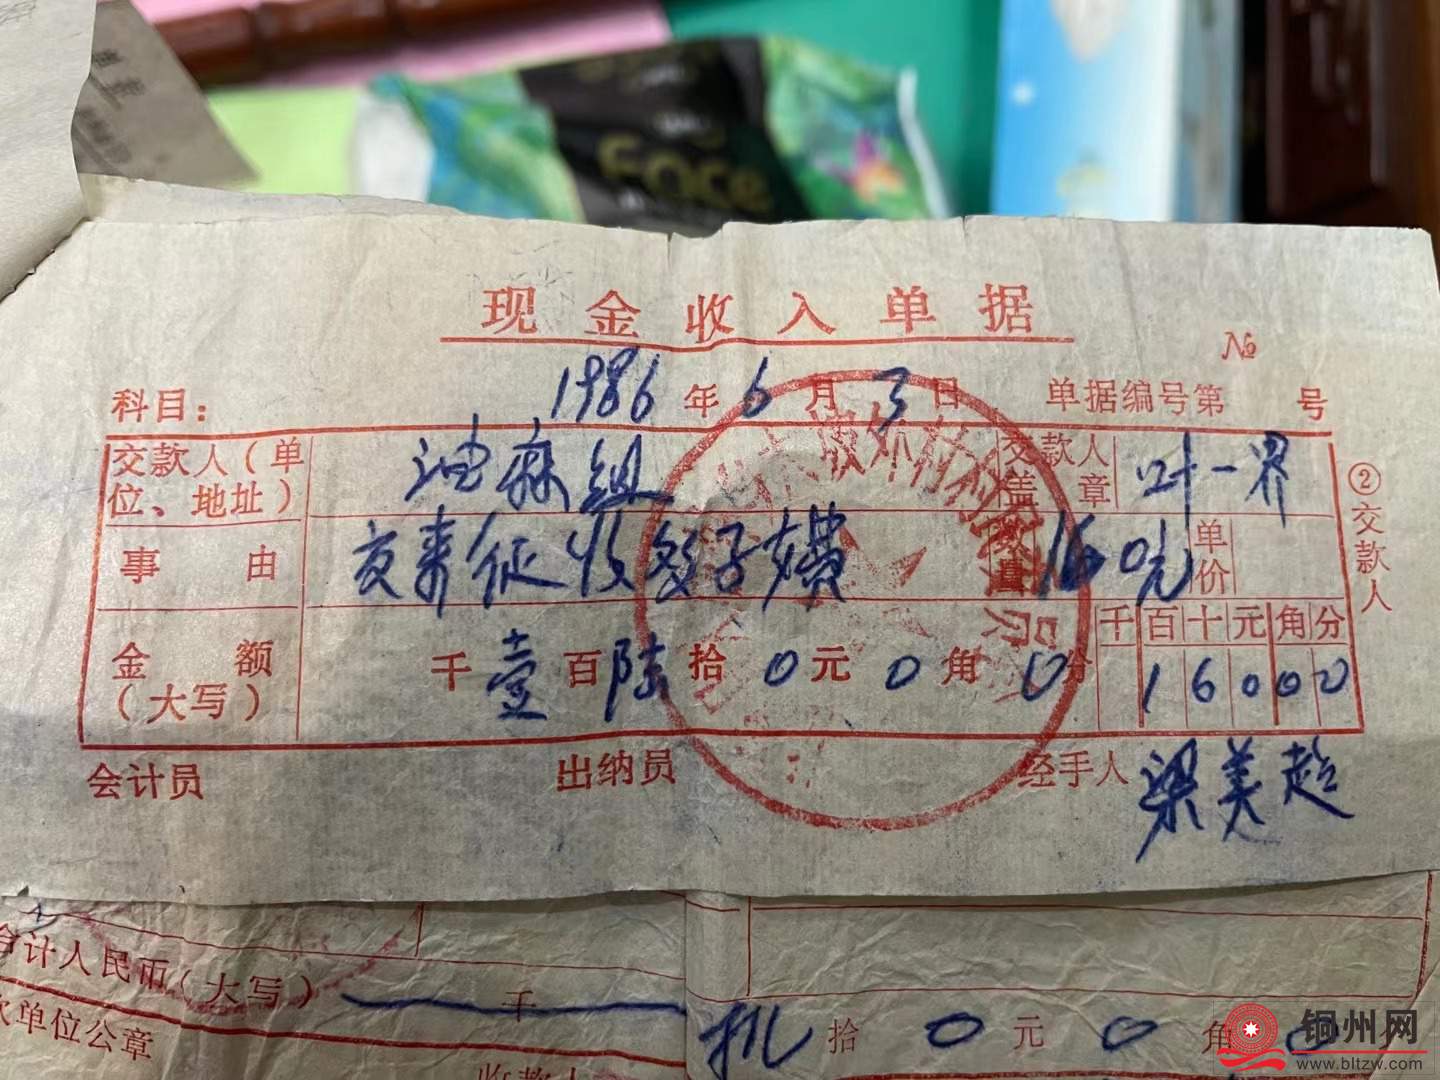 Face
现金收入单据
№
科目：
1986年6月3日
单据编号第 号
交款人（单位、地址）
油麻组
交款人盖章
叶一界
事由
交来征收多子女费
数量
160元
单价
②交款人
金额（大写）
千壹百陆拾0元0角0分
千百十元角分
16000
会计员
出纳员
经手人
梁美超
合计人民币（大写）
千
拾0元0角0
单位公章
收款人
铜州网
www.bltzw.com